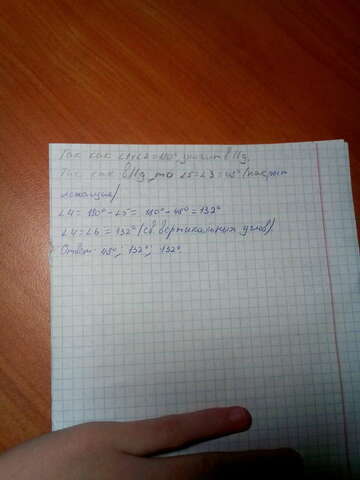 Так как ∠1+∠2=180°, значит b||g.
Так как b||g, то ∠5=∠3=48° (накрест
лежащие)
∠4=180°-∠5=180°-48°=132°
∠4=∠6=132° (св вертикальных углов)
Ответ: 48°; 132°; 132°